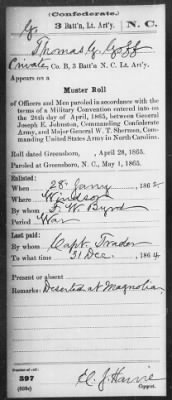 (Confederate.)
G. 3 Batt'n, Lt. Art'y. N. C.
Thomas G. Goff
Private, Co. B, 3 Batt'n N. C. Lt. Art'y.
Appears on a
Muster Roll
of Officers and Men paroled in accordance with the
terms of a Military Convention entered into on
the 26th day of April, 1865, between General
Joseph E. Johnston, Commanding Confederate
Army, and Major General W. T. Sherman, Com-
manding United States Army in North Carolina.
Roll dated Greensboro, April 28, 1865.
Paroled at Greensboro, N. C., May 1, 1865.
Enlisted:
When 28 Jany, 186
Where Windsor
By whom F. W. Byrd
Period War
Last paid:
By whom Capt. Trader
To what time 31 Dec., 1864
Present or absent
Remarks: Deserted at Magnolia
Number of roll:
397
C. J. Harvie
Copyist.